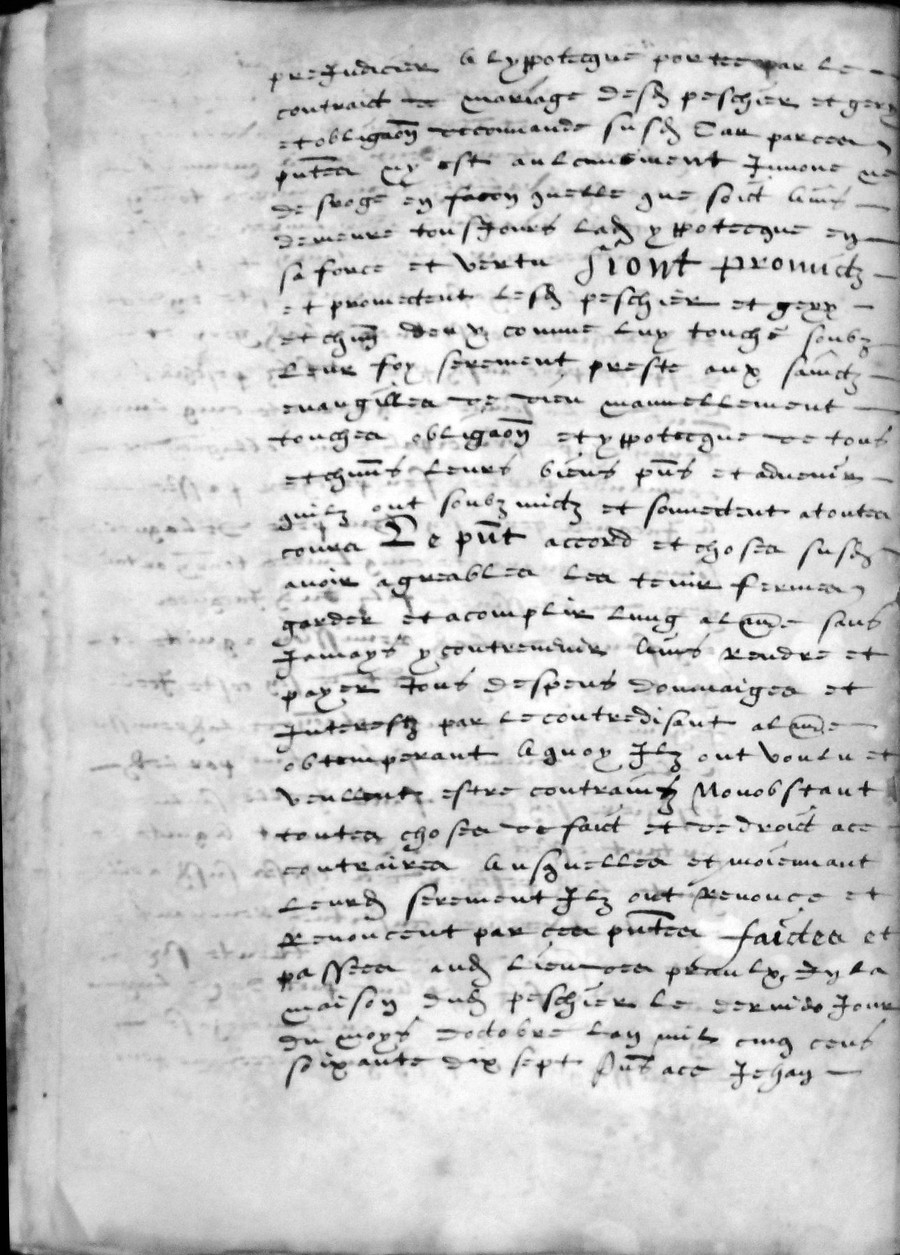 preJudicier a lyppotecque portee par le
contraict de mariage desd peschier et gerx
et obligaõn de comande susd Car par ces
pñtes ny est aulcunement Jnnove ne
desroge en facon quelle que soict ains
demeure tousJours lad yppotecque en
sa force et vertu Sy ont promictz
et promectent lesd peschier et gerx
et chũn deulx comme luy touche soubz
leur foy serement preste aux sainctz
evangilles de dieu manuellement
touches obligaõn et yppotecque de tous
et chũns leurs biens pñs et advenir
quilz ont soubzmictz et soumectent a toutes
cours Le pñt accord et choses susd
avoir agreables les tenir fermes
garder et acomplir lung a laũe sans
Jamays y contrevenir ains Rendre et
payer tous despens dommaiges et
Jnterestz par le contredisant a laũe
obtemperant a quoy Jlz ont voulu et
veullent estre contrainctz Nonobstant
toutes choses de faict et de droict a ce
contraires ausquelles et moiennant
leurd serement Jlz ont Renonce et
Renoncent par ces pñtes faictes et
passees aud lieu des praulx En la
maison dud peschier le dernier Jour
du moys doctobre lan mil cinq cens
soixante dix sept pñs a ce Jehan